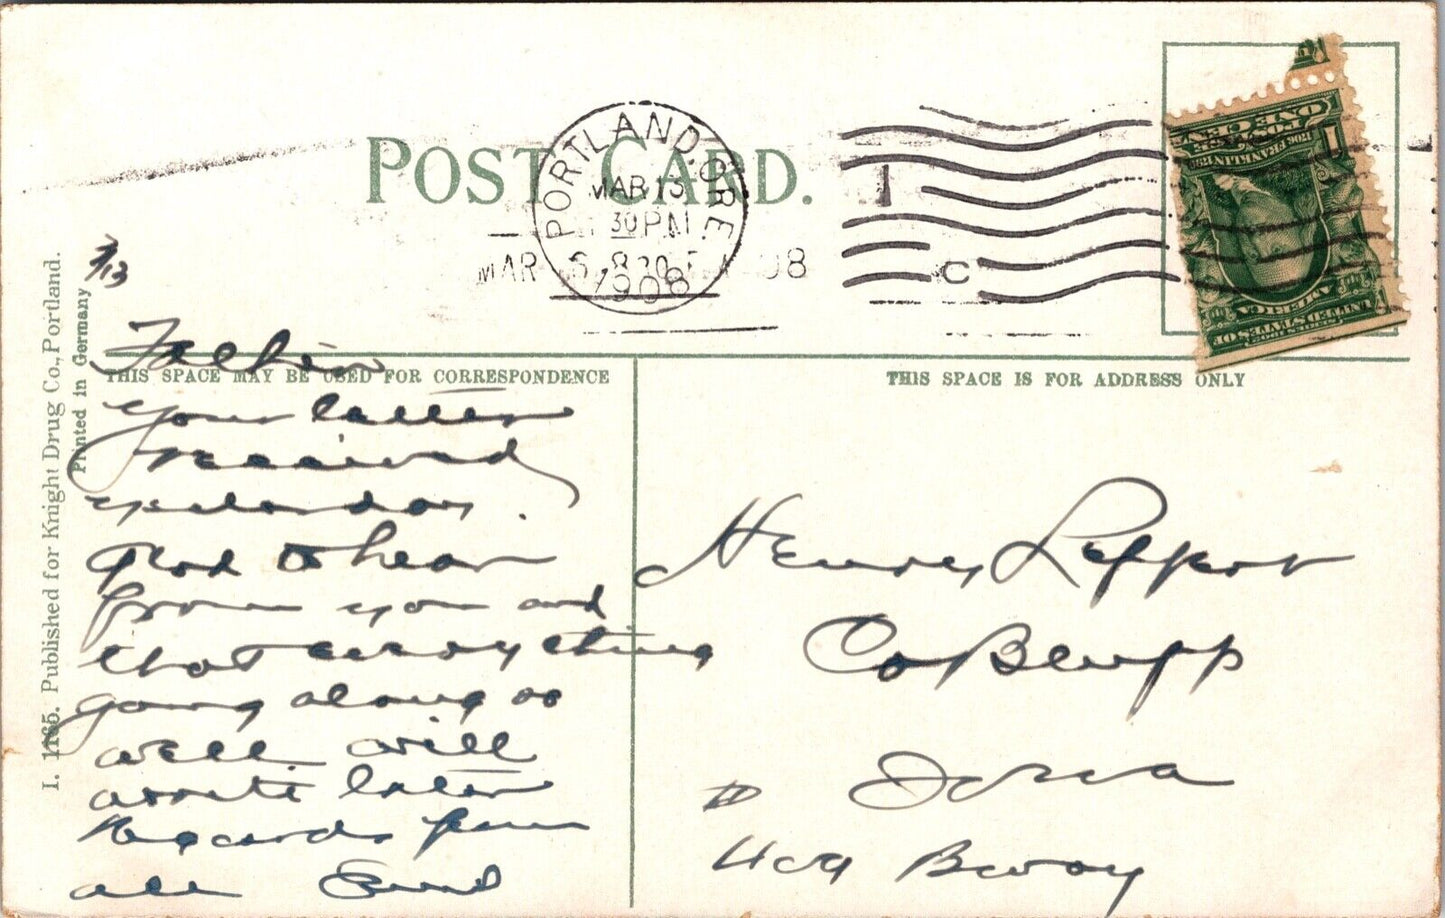 POST CARD.
PORTLAND, ORE.
MAR 13
30 PM
1908
MAR
8 30
08
C
ONE CENT
FRANKLIN
UNITED STATES OF
AMERICA
I. 1165. Published for Knight Drug Co., Portland.
Printed in Germany
3/13
THIS SPACE MAY BE USED FOR CORRESPONDENCE
your letter
received
yesterday.
Glad to hear
from you and
that everything
going along so
well will
write later
Regards from
all
THIS SPACE IS FOR ADDRESS ONLY
Henry Leffert
Co Bluffs
Iowa
# Bway